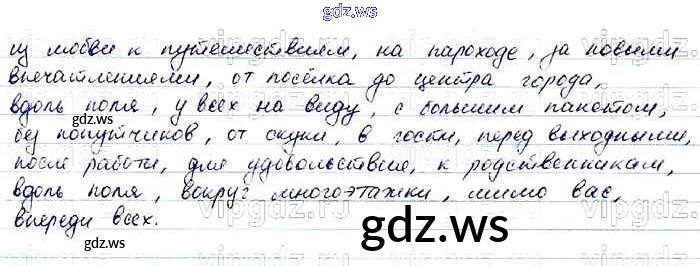 gdz.ws
из любви к путешествиям, на пароходе, за новыми
впечатлениями, от посёлка до центра города,
вдоль поля, у всех на виду, с большим пакетом,
без попутчиков, от скуки, в гости, перед выходными,
после работы, для удовольствия, к родственникам,
вдоль поля, вокруг многоэтажки, мимо вас,
впереди всех.
gdz.ws
gdz.ws